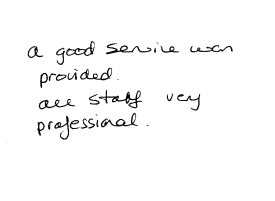 a good service was
provided.
all staff very
professional.